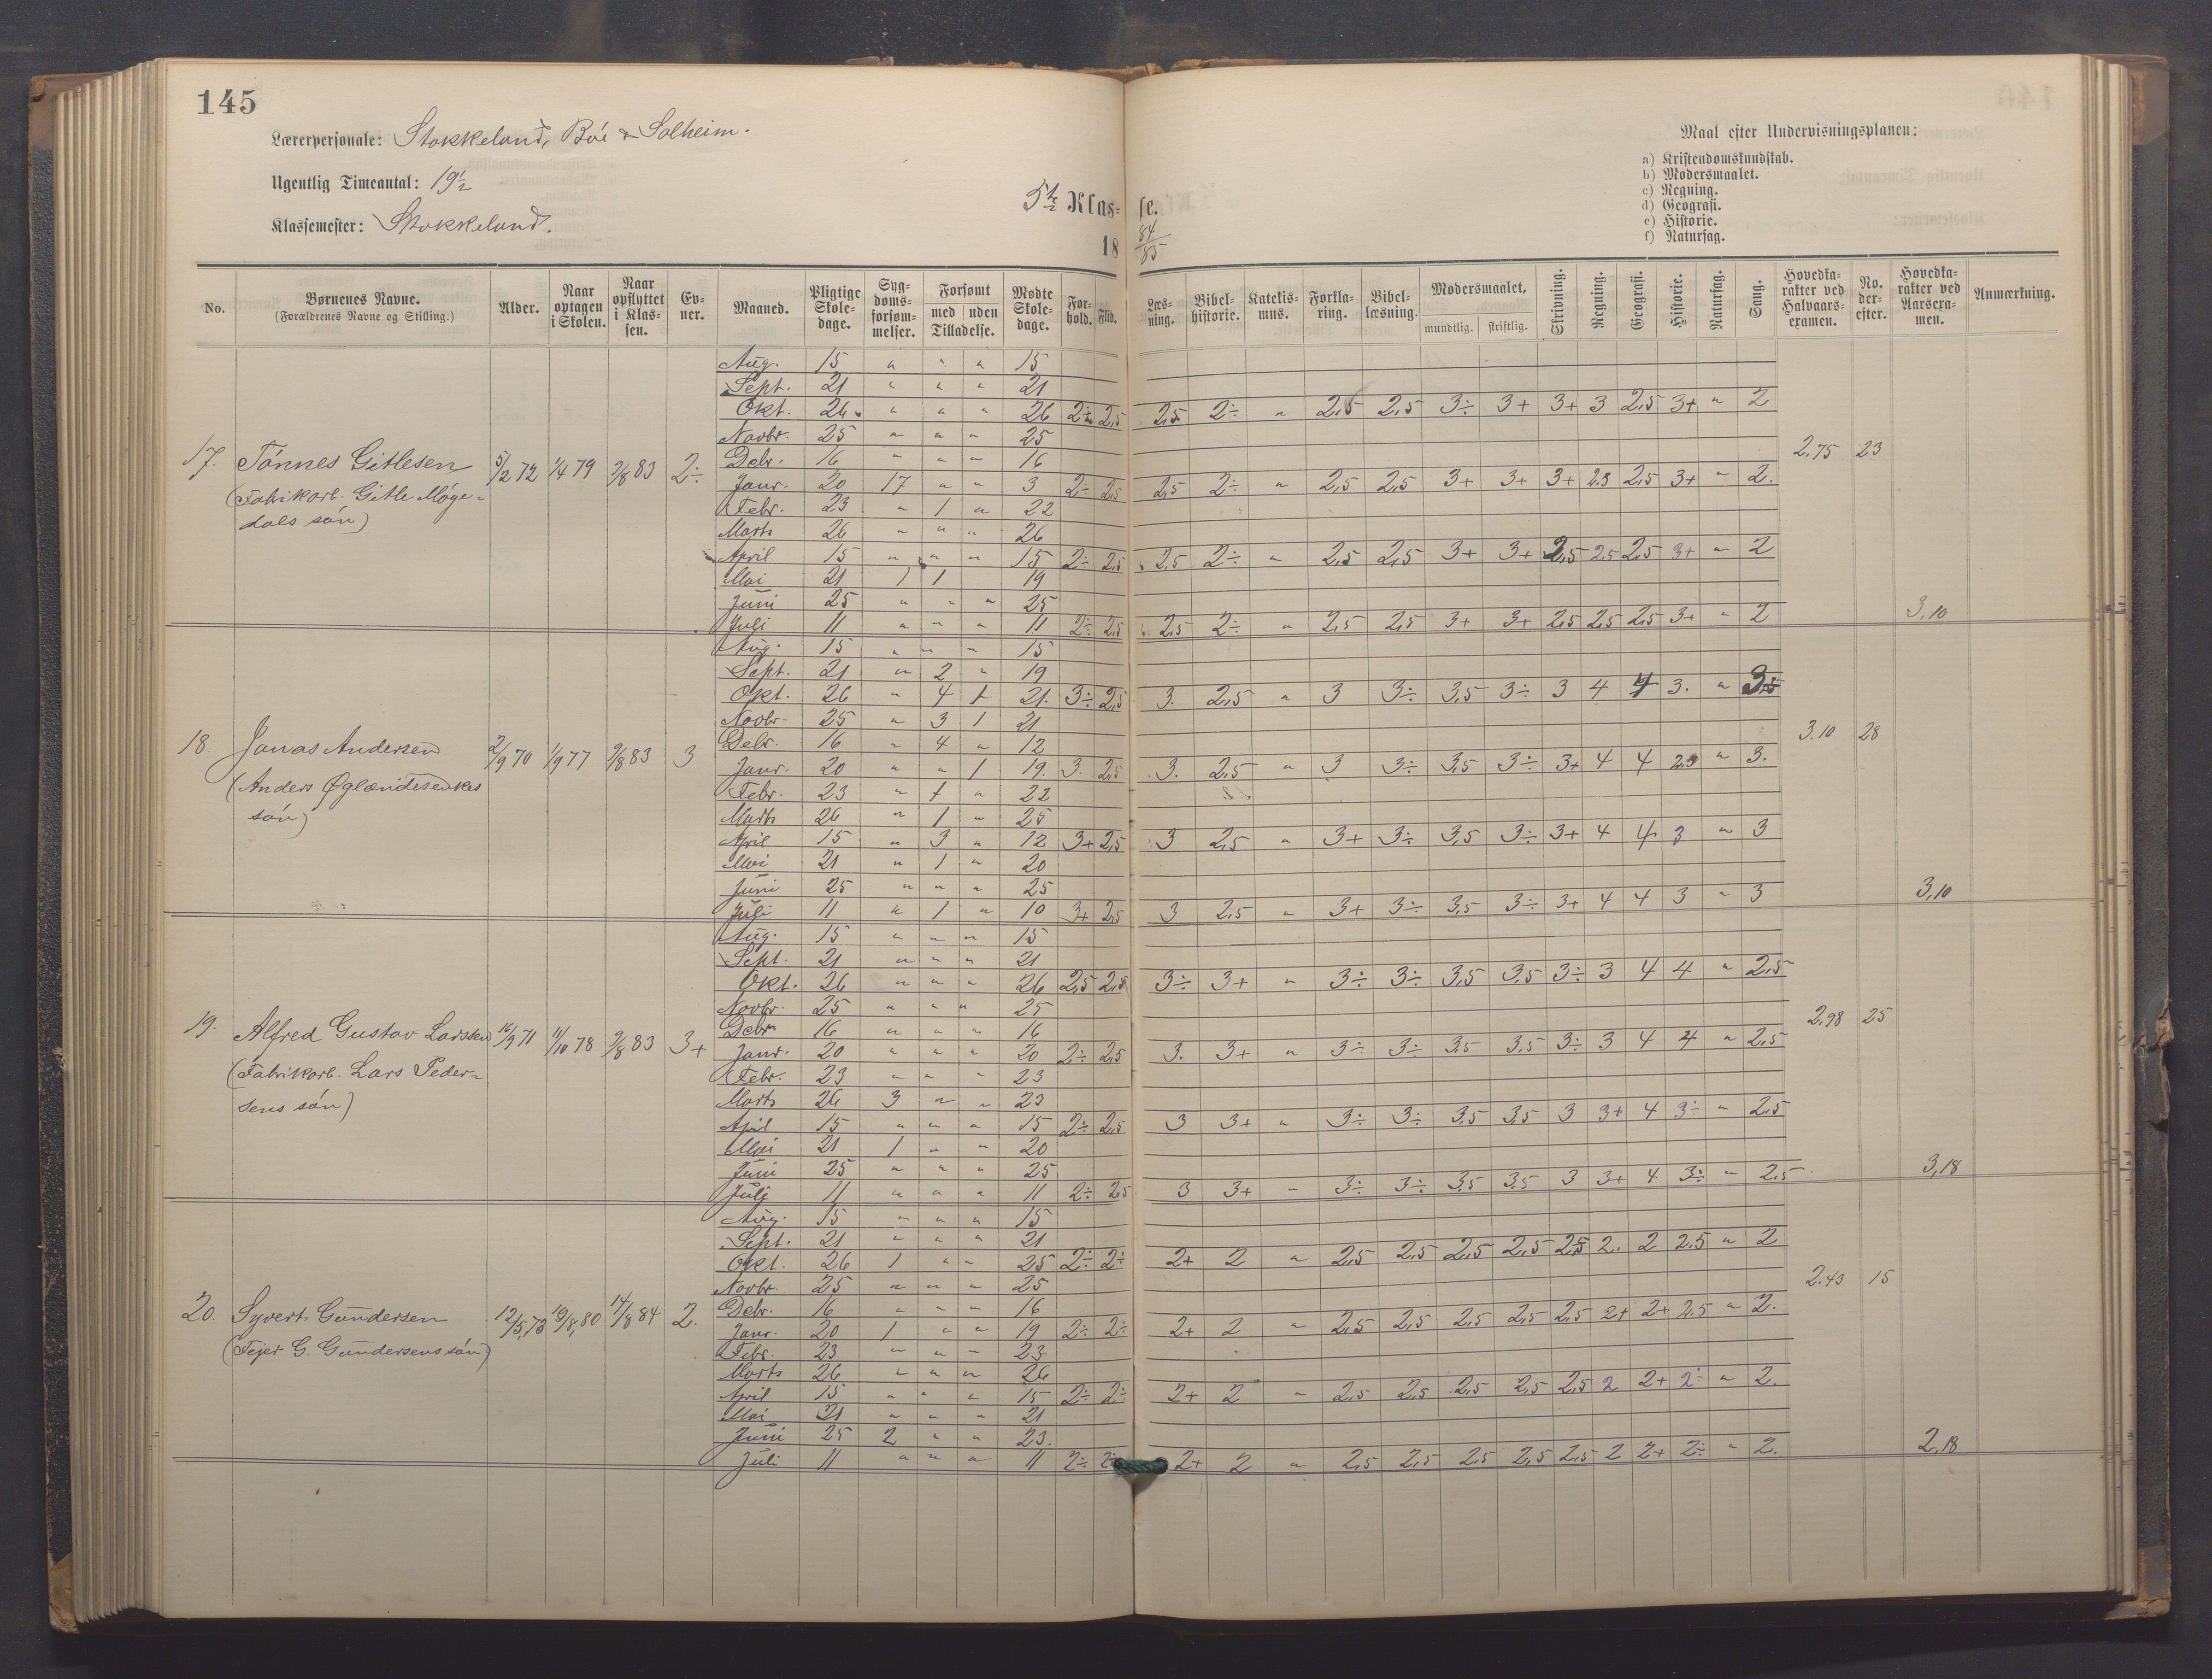 145
Lærerpersonale: Stokkeland, Bøe & Solheim.
Ugentlig Timeantal: 19 1/2
Klassemester: Stokkeland.
5te Klasse.
18 84/85
Maal efter Undervisningsplanen:
a) Kristendomskundskab.
b) Modersmaalet.
c) Regning.
d) Geografi.
e) Historie.
f) Naturfag.
No. Børnenes Navne. (Forældrenes Navne og Stilling.) Alder. Naar optagen i Skolen. Naar opflyttet i Klassen. Evner. Maaned. Pligtige Skoledage. Sygdomsforsømmelser. Forsømt med Tilladelse. uden Tilladelse. Mødte Skoledage. Forhold. Flid. Læsning. Bibelhistorie. Katekismus. Forklaring. Bibellæsning. Modersmaalet, mundtlig. skriftlig. Skrivning. Regning. Geografi. Historie. Naturfag. Sang. Hovedkarakter ved Halvaarsexamen. No. derefter. Hovedkarakter ved Aarsexamen. Anmærkning.
17. Tønnes Gitlesen 5/2 72 1/4 79 9/8 83 2÷ 2.75 23 3,10
(Fabrikarb. Gitle Møgedals søn)
Aug. 15 " " " 15
Sept. 21 " " " 21
Okt. 26 " " " 26 2÷ 2,5 2,5 2÷ " 2,5 2,5 3÷ 3+ 3+ 3 2,5 3+ " 2
Novbr. 25 " " " 25
Debr. 16 " " " 16
Janr. 20 17 " " 3 2÷ 2,5 2,5 2÷ " 2,5 2,5 3+ 3+ 3+ 2.5 2,5 3+ " 2.
Febr. 23 " 1 " 22
Marts 26 " " " 26
April 15 " " " 15 2÷ 2,5 2,5 2÷ " 2,5 2,5 3+ 3+ 2,5 2,5 2,5 3+ " 2
Mai 21 1 1 19
Juni 25 " " " 25
Juli 11 " " " 11 2÷ 2,5 2,5 2÷ " 2,5 2,5 3+ 3+ 2,5 2,5 2,5 3+ " 2
18. Jonas Andersen 2/9 70 1/9 77 9/8 83 3 3.10 28 3,10
søn)
Aug. 15 " " " 15
Sept. 21 " 2 " 19
Okt. 26 " 4 1 21. 3÷ 2,5 3. 2,5 " 3 3÷ 3,5 3÷ 3 4 4 3. "
Novbr. 25 " 3 1 21
Debr. 16 " 4 " 12
Janr. 20 " " 1 19. 3. 2,5 3. 2,5 " 3 3÷ 3,5 3÷ 3+ 4 4 2,5 " 3.
Febr. 23 " 1 " 22
Marts 26 " 1 " 25
April 15 " 3 " 12 3+ 2,5 3 2,5 " 3+ 3÷ 3,5 3÷ 3+ 4 4 3 " 3
Mai 21 " 1 " 20
Juni 25 " " " 25
Juli 11 " 1 " 10 3+ 2,5 3 2,5 " 3+ 3÷ 3,5 3÷ 3+ 4 4 3 " 3
19. Alfred Gustav Larssen 16/9 71 11/10 78 9/8 83 3+ 2,98 25 3,18
(Fabrikarb. Lars Pedersens søn)
Aug. 15 " " " 15
Sept. 21 " " " 21
Okt. 26 " " " 26 2,5 2,5 3÷ 3+ " 3÷ 3÷ 3,5 3,5 3÷ 3 4 4 " 2,5
Novbr. 25 " " " 25
Debr. 16 " " " 16
Janr. 20 " " " 20 2÷ 2,5 3. 3+ " 3÷ 3÷ 3,5 3,5 3÷ 3 4 4 " 2,5
Febr. 23 " " " 23
Marts 26 3 " " 23
April 15 " " " 15 2÷ 2,5 3 3+ " 3÷ 3÷ 3,5 3,5 3 3+ 4 3÷ " 2,5
Mai 21 1 " " 20
Juni 25 " " " 25
Juli 11 " " " 11 2÷ 2,5 3 3+ " 3÷ 3÷ 3,5 3,5 3 3+ 4 3÷ " 2,5
20. Syvert Gundersen 12/5 73 19/8 80 14/8 84 2. 2.43 15 2,18
(Fejer G. Gundersens søn)
Aug. 15 " " " 15
Sept. 21 " " " 21
Okt. 26 1 " " 25 2÷ 2÷ 2+ 2 " 2,5 2,5 2,5 2,5 2,5 2. 2 2.5 " 2
Novbr. 25 " " " 25
Debr. 16 " " " 16
Janr. 20 1 " " 19 2÷ 2÷ 2+ 2 " 2,5 2,5 2,5 2,5 2,5 2+ 2+ 2,5 " 2.
Febr. 23 " " " 23
Marts 26 " " " 26
April 15 " " " 15 2÷ 2÷ 2+ 2 " 2,5 2,5 2,5 2,5 2,5 2 2+ 2÷ " 2.
Mai 21 " " " 21
Juni 25 2 " " 23.
Juli 11 " " " 11 2÷ 2÷ 2+ 2 " 2,5 2,5 2,5 2,5 2,5 2 2+ 2÷ " 2.